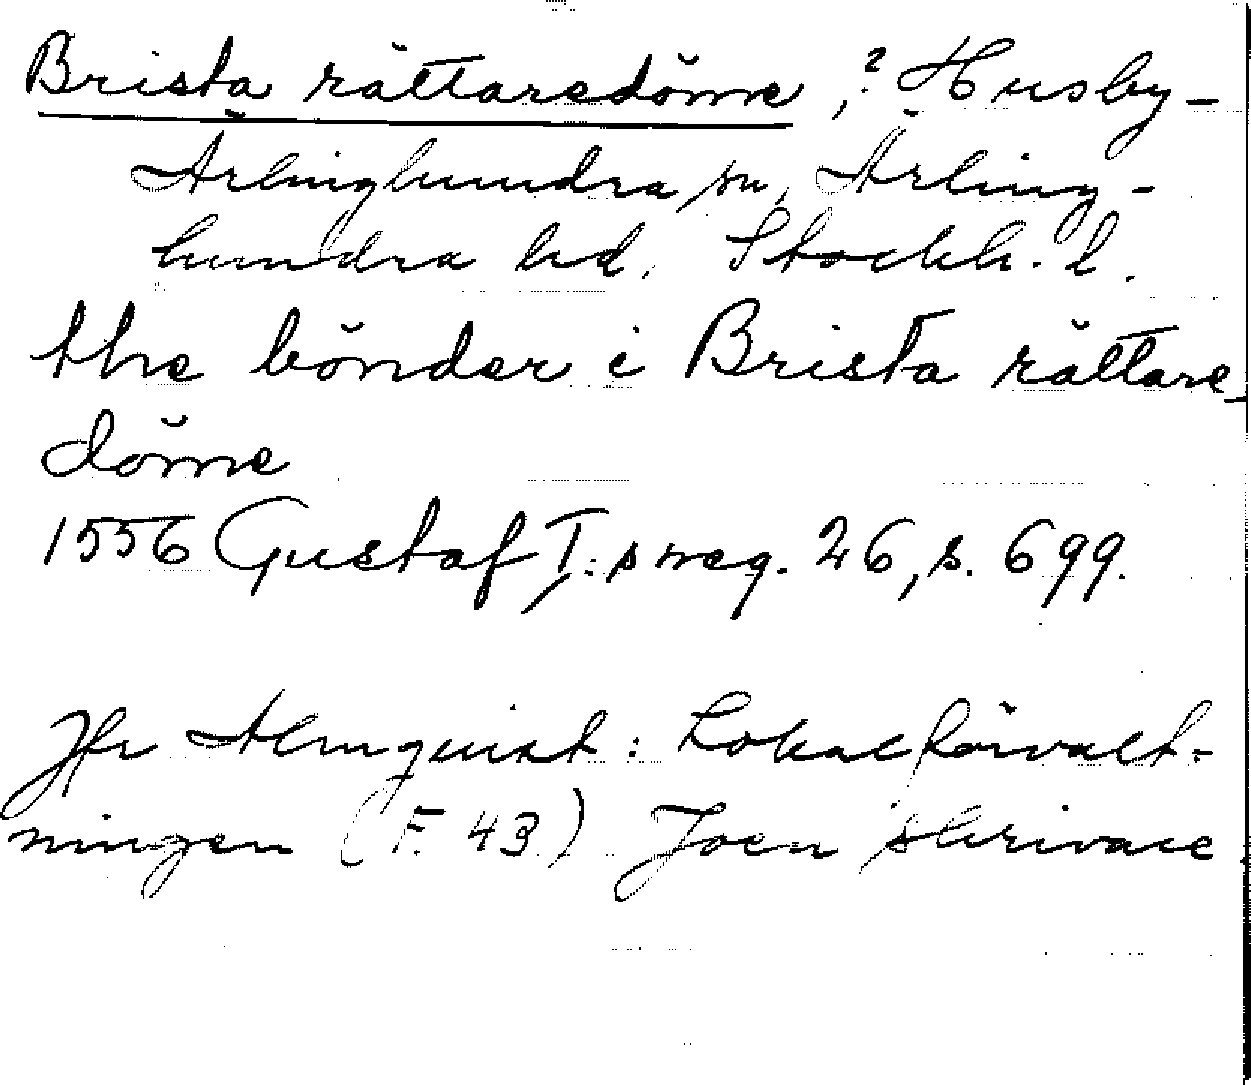 Brista rättaredöme, ? Husby-
Ärlinghundra sn, Ärling-
hundra hd, Stockh. l.
the bönder i Brista rättare
döme
1556 Gustaf I:s reg. 26, s. 699.
Jfr Almquist: Lokalförvalt-
ningen (F. 43) Joen skrivare